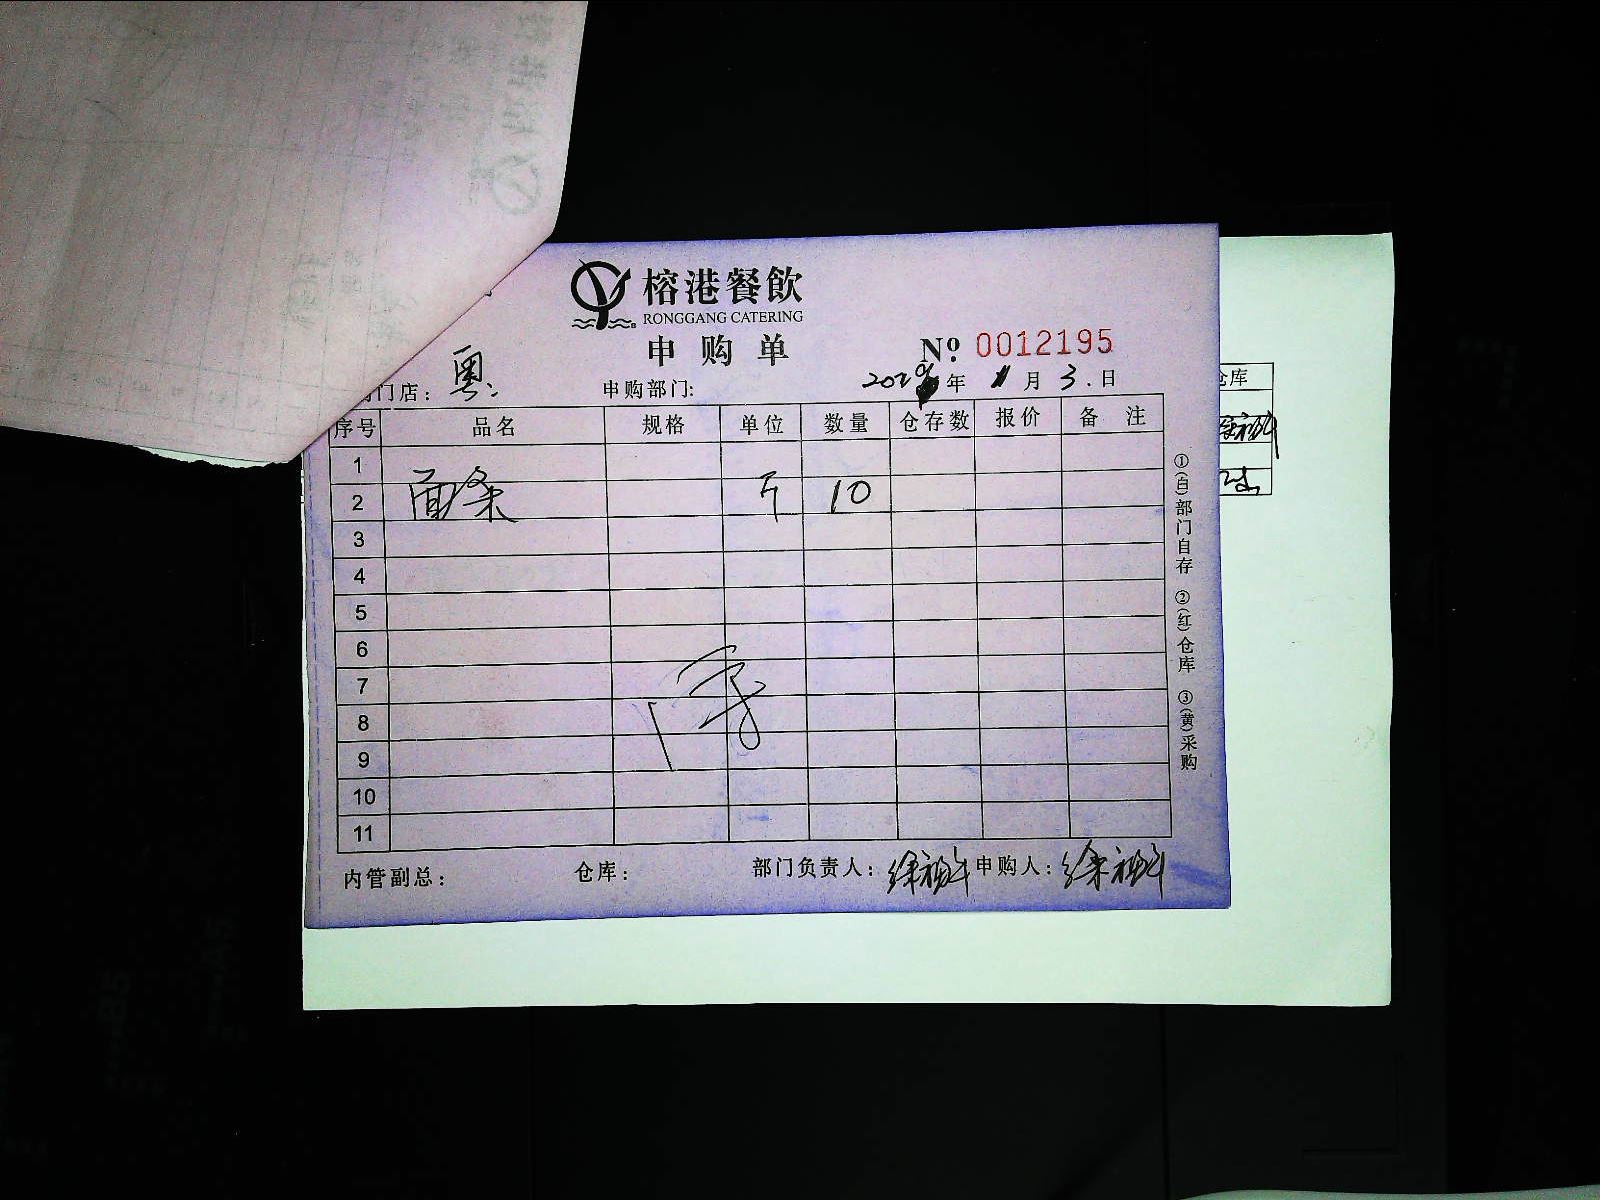 榕港餐飲
RONGGANG CATERING
申购单
№: 0012195
门店: 粤 申购部门: 年 月 3.日
序号 品名 规格 单位 数量 仓存数 报价 备注
1
2 面条 斤 10
3
4
5
6
7
8
9
10
11
内管副总: 仓库: 部门负责人: 申购人:
①(白)部门自存 ②(红)仓库 ③(黄)采购
仓库